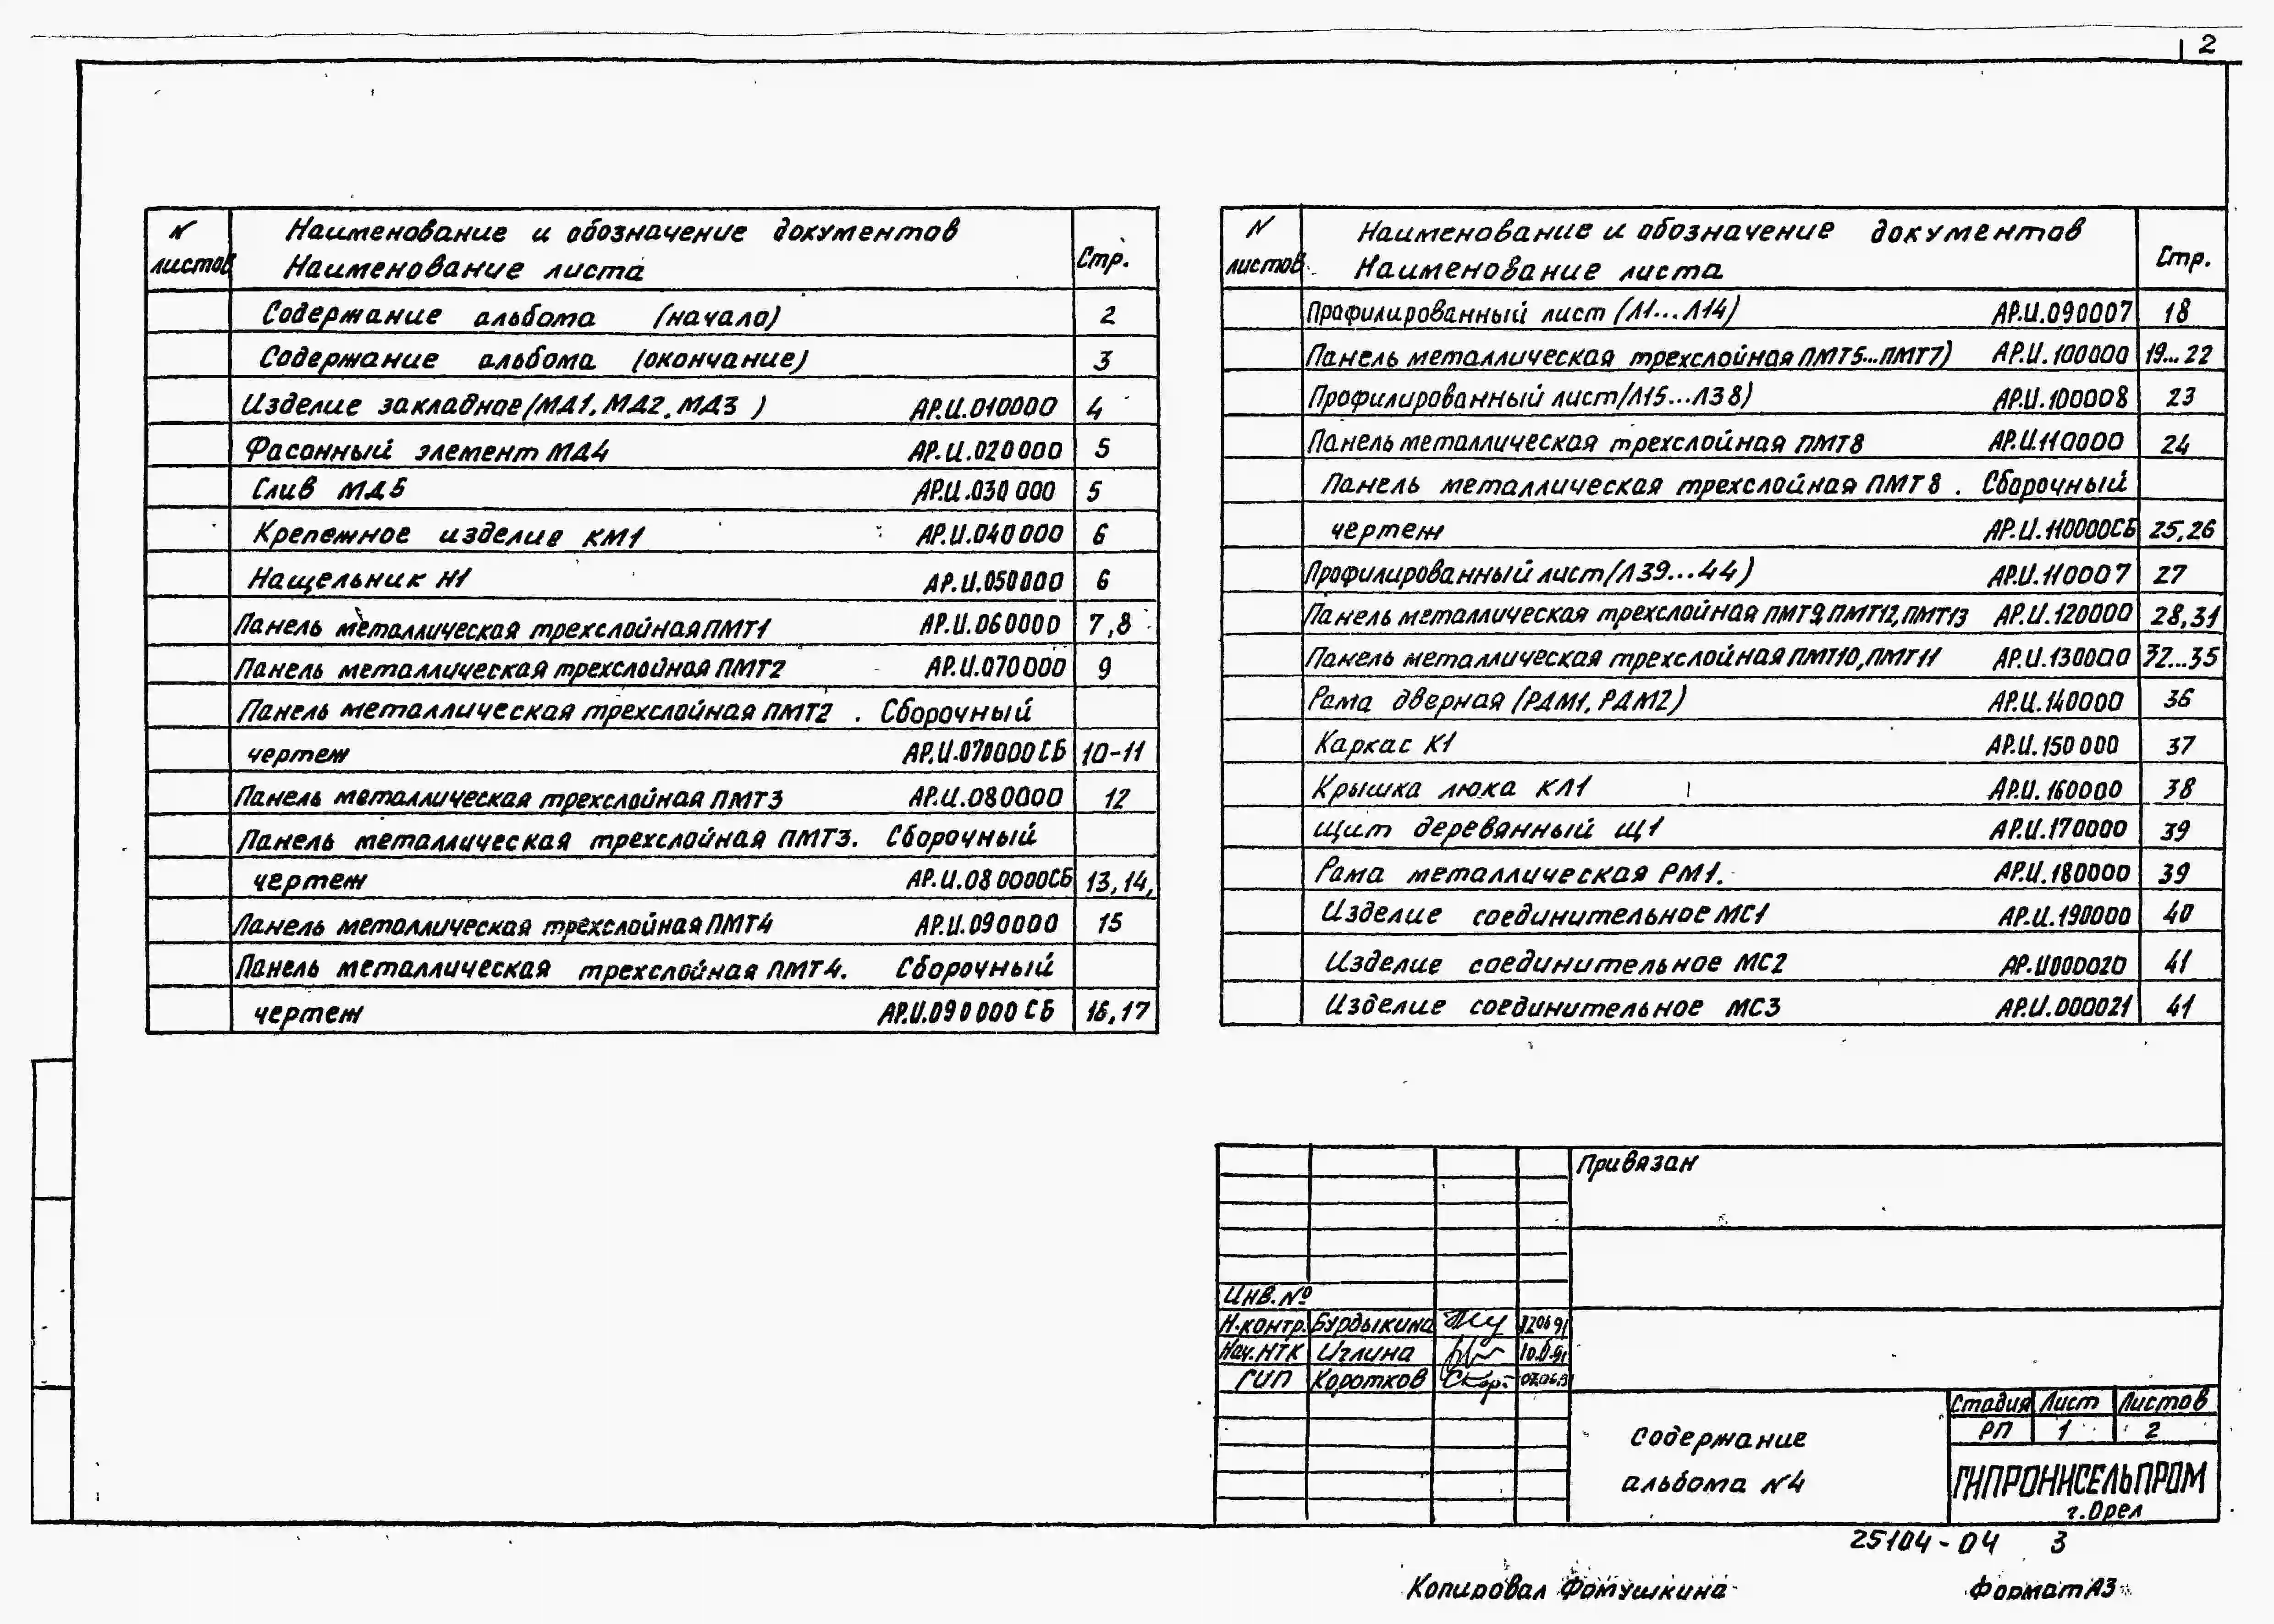 2
N листов
Наименование и обозначение документов
Наименование листа
Стр.
Содержание альбома (начало) 2
Содержание альбома (окончание) 3
Изделие закладное (МД1, МД2, МД3) АР.И.010000 4
Фасонный элемент МД4 АР.И.020000 5
Слив МД5 АР.И.030000 5
Крепежное изделие КМ1 АР.И.040000 6
Нащельник Н1 АР.И.050000 6
Панель металлическая трехслойная ПМТ1 АР.И.060000 7,8
Панель металлическая трехслойная ПМТ2 АР.И.070000 9
Панель металлическая трехслойная ПМТ2. Сборочный
чертеж АР.И.070000СБ 10-11
Панель металлическая трехслойная ПМТ3 АР.И.080000 12
Панель металлическая трехслойная ПМТ3. Сборочный
чертеж АР.И.080000СБ 13,14,
Панель металлическая трехслойная ПМТ4 АР.И.090000 15
Панель металлическая трехслойная ПМТ4. Сборочный
чертеж АР.И.090000СБ 16,17
N листов
Наименование и обозначение документов
Наименование листа
Стр.
Профилированный лист (Л1...Л14) АР.И.090007 18
Панель металлическая трехслойная ПМТ5...ПМТ7) АР.И.100000 19...22
Профилированный лист (Л15...Л38) АР.И.100008 23
Панель металлическая трехслойная ПМТ8 АР.И.110000 24
Панель металлическая трехслойная ПМТ8. Сборочный
чертеж АР.И.110000СБ 25,26
Профилированный лист (Л39...44) АР.И.110007 27
Панель металлическая трехслойная ПМТ9, ПМТ12, ПМТ13 АР.И.120000 28,31
Панель металлическая трехслойная ПМТ10, ПМТ11 АР.И.130000 32...35
Рама дверная (РДМ1, РДМ2) АР.И.140000 36
Каркас К1 АР.И.150000 37
Крышка люка КЛ1 АР.И.160000 38
Щит деревянный Щ1 АР.И.170000 39
Рама металлическая РМ1. АР.И.180000 39
Изделие соединительное МС1 АР.И.190000 40
Изделие соединительное МС2 АР.И000020 41
Изделие соединительное МС3 АР.И.000021 41
Привязан
Инв.№
Н.контр. Бурдыкина
Нач.НТК Иглина
ГИП Коротков
Стадия Лист Листов
РП 1 2
Содержание
альбома N4
ГИПРОНИСЕЛЬПРОМ
г.Орел
25104-04 3
Копировал Фомушкина Формат А3